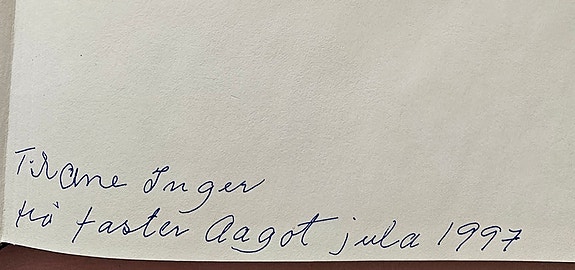 Til Ane Inger
frå faster Aagot jula 1997